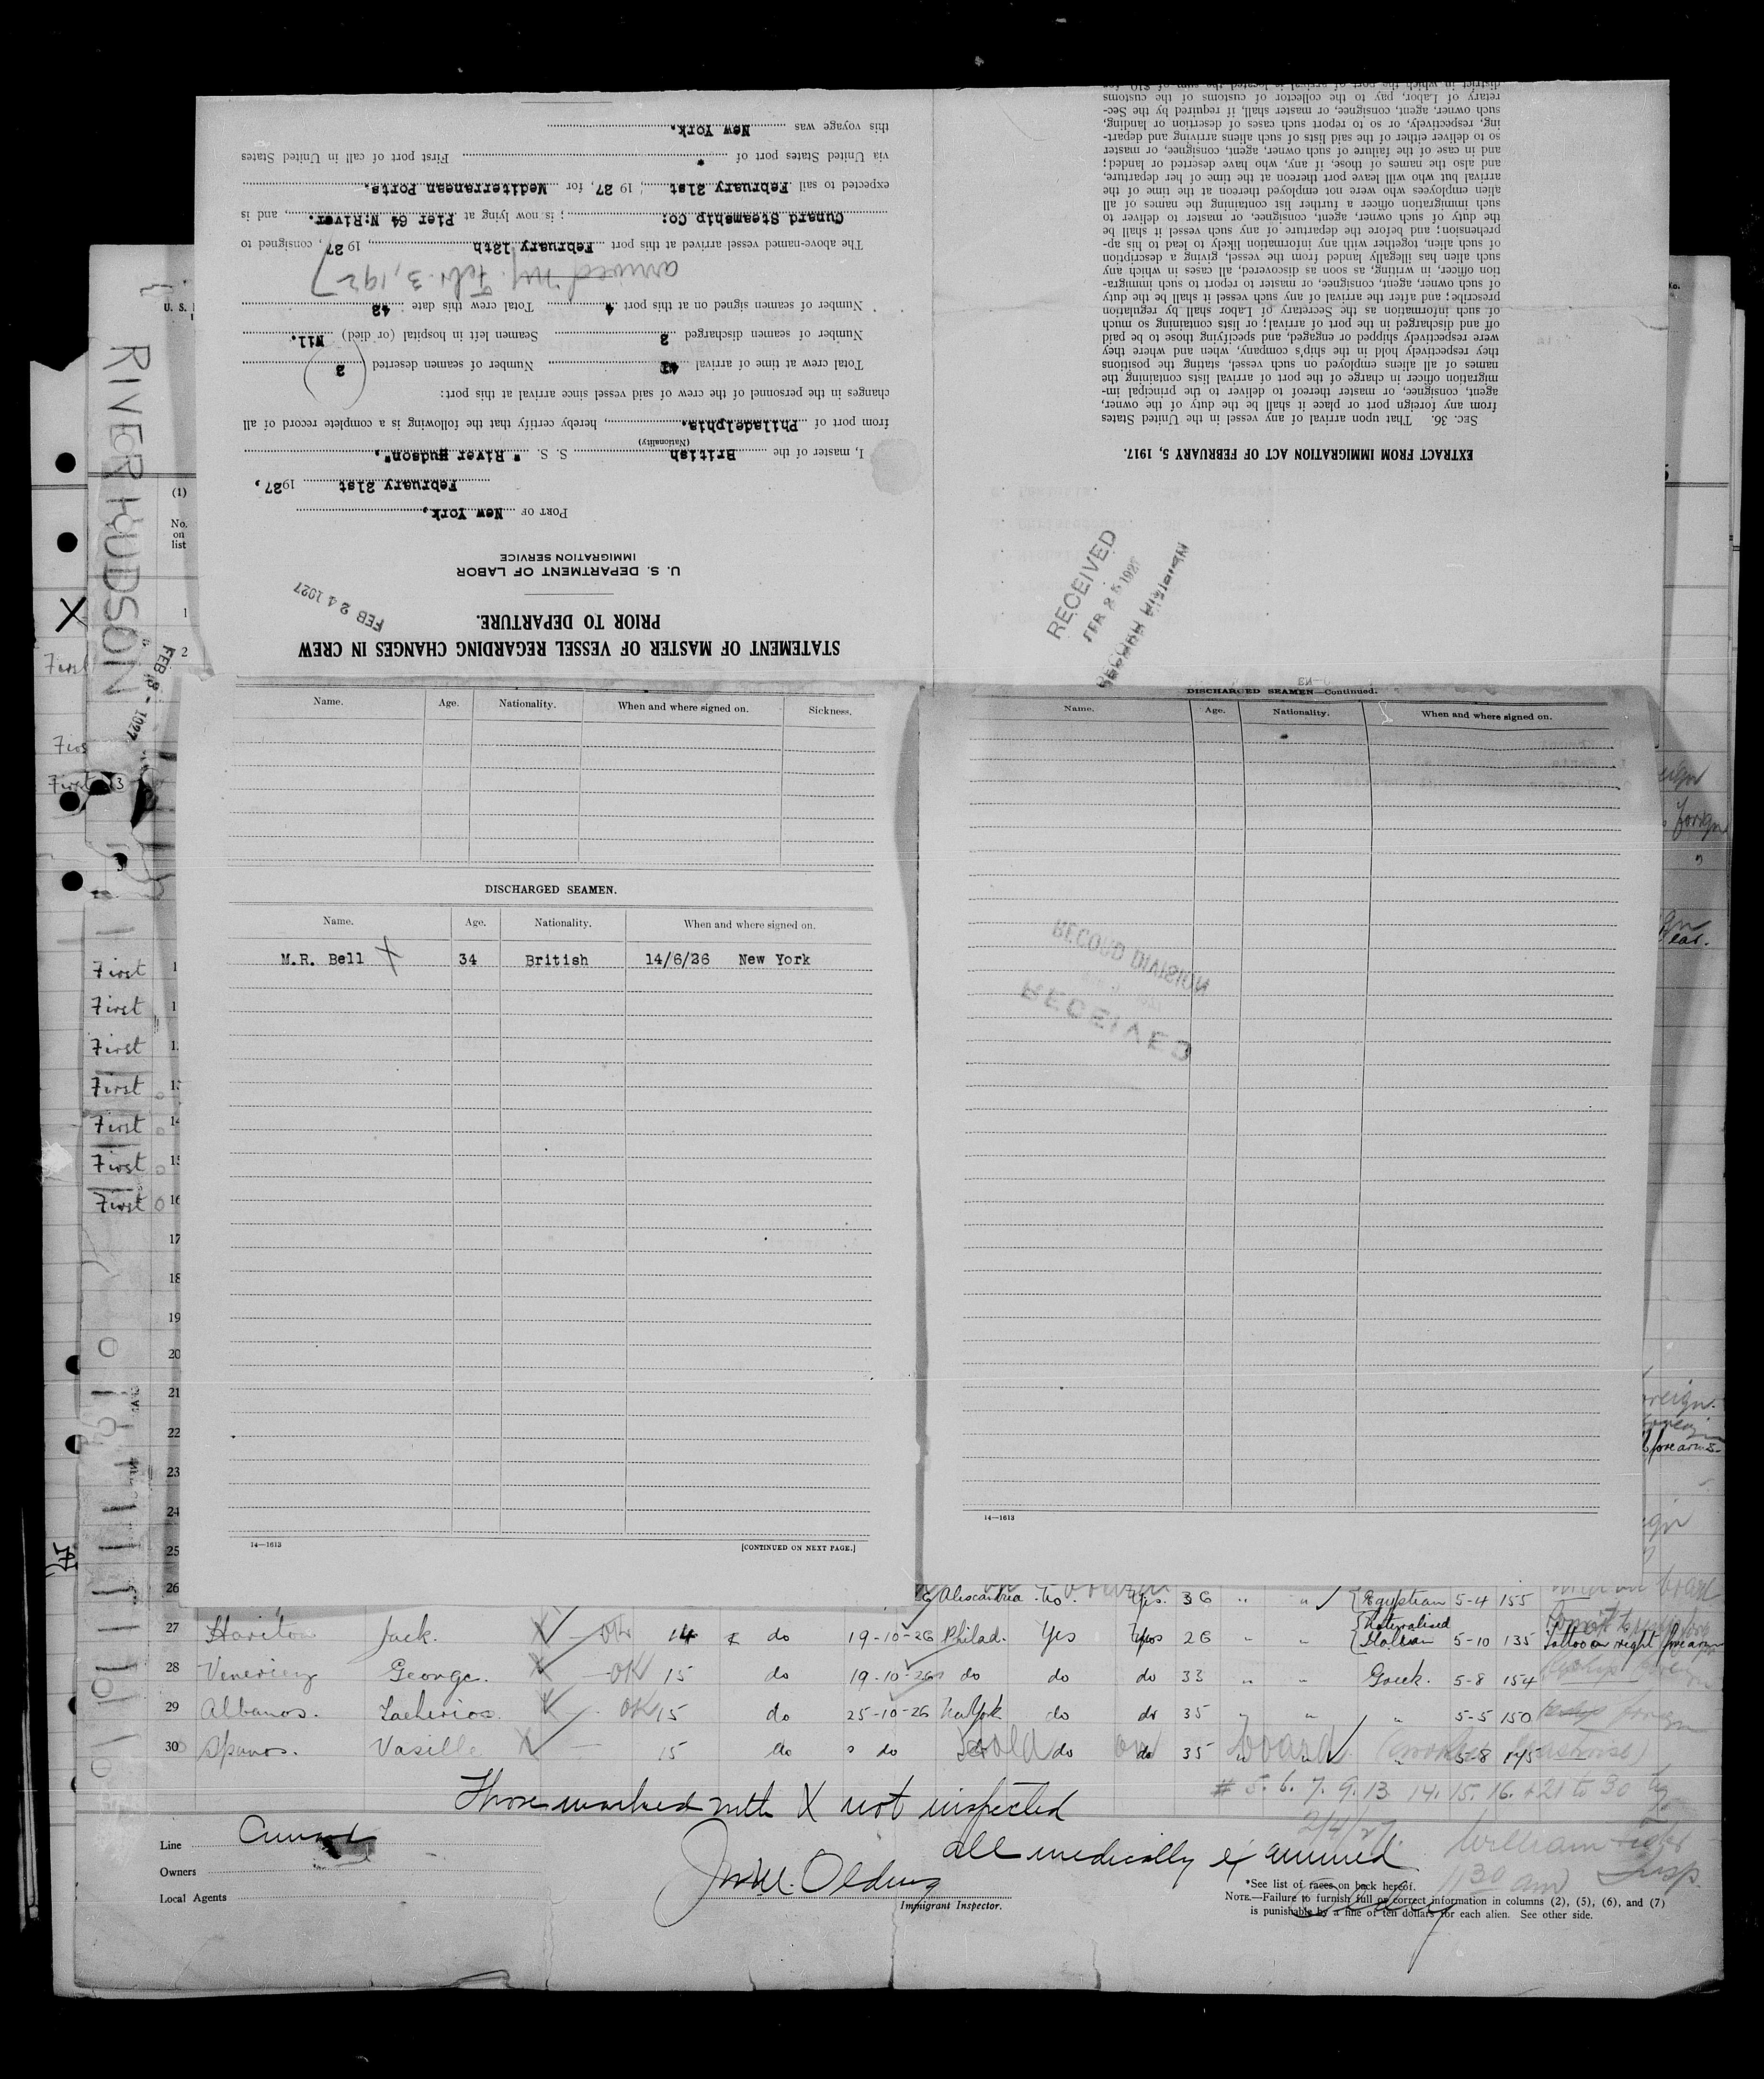 STATEMENT OF MASTER OF VESSEL REGARDING CHANGES IN CREW
PRIOR TO DEPARTURE.
FEB 24 1927
U. S. DEPARTMENT OF LABOR
IMMIGRATION SERVICE
PORT OF New York,
February 21st 1927,
I, master of the British S. S. "River Hudson",
(Nationality)
from port of Philadelphia, hereby certify that the following is a complete record of all
changes in the personnel of the crew of said vessel since arrival at this port:
Total crew at time of arrival Number of seamen deserted
Number of seamen discharged Seamen left in hospital (or died) Nil.
Number of seamen signed on at this port 4 Total crew this date
arrived ny. Feb. 3, 1927
The above-named vessel arrived at this port February 12th, 1927, consigned to
Cunard Steamship Co: ; is now lying at Pier 64 N:River., and is
expected to sail February 21st ; 1927, for Mediterranean Ports.
via United States port of First port of call in United States
this voyage was New York.
EXTRACT FROM IMMIGRATION ACT OF FEBRUARY 5, 1917.
SEC. 36. That upon arrival of any vessel in the United States
from any foreign port or place it shall be the duty of the owner,
agent, consignee, or master thereof to deliver to the principal im-
migration officer in charge of the port of arrival lists containing the
names of all aliens employed on such vessel, stating the positions
they respectively hold in the ship's company, when and where they
were respectively shipped or engaged, and specifying those to be paid
off and discharged in the port of arrival; or lists containing so much
of such information as the Secretary of Labor shall by regulation
prescribe; and after the arrival of any such vessel it shall be the duty
of such owner, agent, consignee, or master to report to such immigra-
tion officer, in writing, as soon as discovered, all cases in which any
such alien has illegally landed from the vessel, giving a description
of such alien, together with any information likely to lead to his ap-
prehension; and before the departure of any such vessel it shall be
the duty of such owner, agent, consignee, or master to deliver to
such immigration officer a further list containing the names of all
alien employees who were not employed thereon at the time of the
arrival but who will leave port thereon at the time of her departure,
and also the names of those, if any, who have deserted or landed;
and in case of the failure of such owner, agent, consignee, or master
so to deliver either of the said lists of such aliens arriving and depart-
ing, respectively, or so to report such cases of desertion or landing,
such owner, agent, consignee, or master shall, if required by the Sec-
retary of Labor, pay to the collector of customs of the customs
district in which the port of arrival is located the sum of $10 for
RECEIVED
FEB 25 192
RECORD DIVISION
U. S.
RIVER HUDSON
FEB 3 - 1927
(1)
No.
on
list
1
2
First
First
3
Name. Age. Nationality. When and where signed on. Sickness.
DISCHARGED SEAMEN.
Name. Age. Nationality. When and where signed on.
M.R. Bell X 34 British 14/6/26 New York
14—1613 [CONTINUED ON NEXT PAGE.]
DISCHARGED SEAMEN—Continued.
Name. Age. Nationality. When and where signed on.
RECORD DIVISION
RECEIVED
14—1613
First
First
First
First
First
First
First 16
17
18
19
20
21
22
23
24
25
26 Yes. 36 " " Egyptian 5-4 155
27 Jack. X OK 14 do 19-10-26 Philad. Yes Yes 26 " " Italian 5-10 135 Tattoo on right forearm
28 George. X OK 15 do 19-10-26 do do do 33 " " Greek. 5-8 154
29 Albanos. X OK 15 do 25-10-26 do do 35 " " " 5-5 150 foreign
30 Spanos. Vasille X 15 do do do do 35 " " " 5-8 145
Those marked with X not inspected
# 5. 6. 7. 9. 13. 14. 15. 16. + 21 to 30
2/4/27
Line Cunard
Owners
Local Agents
all medically examined
William
Insp.
Immigrant Inspector.
*See list of races on back hereof.
NOTE.—Failure to furnish full or correct information in columns (2), (5), (6), and (7)
is punishable by a fine of ten dollars for each alien. See other side.